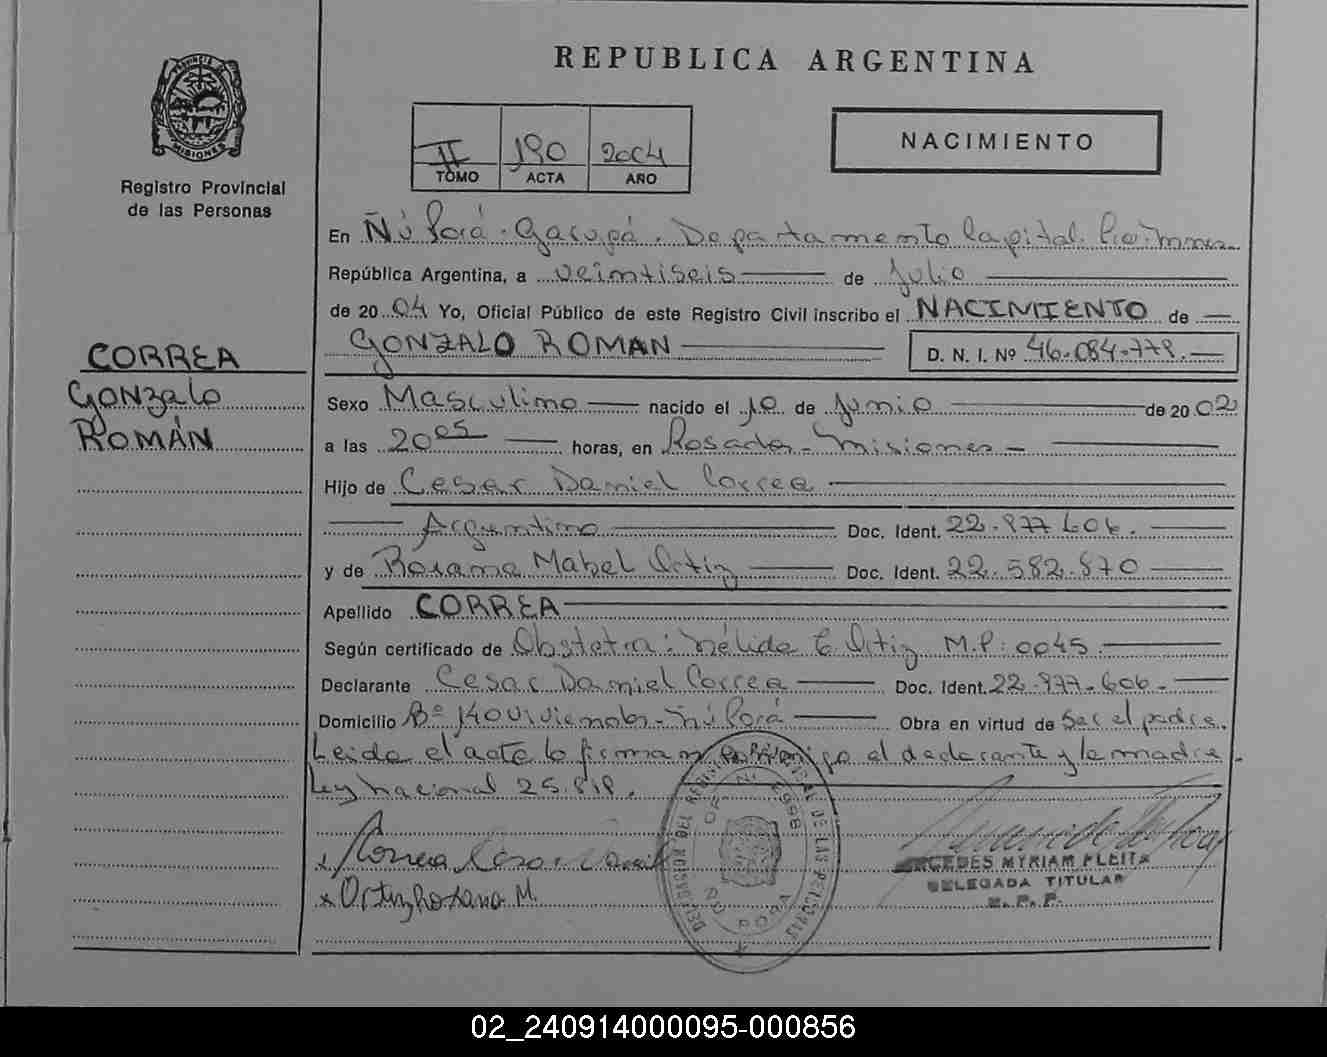 REPUBLICA ARGENTINA
PROVINCIA DE
MISIONES
Registro Provincial
de las Personas
II 190 2004
TOMO ACTA AÑO
NACIMIENTO
En Ñú Porá - Garupá. Departamento Capital. Pcia. Mnes.
República Argentina, a veintiseis de Julio
de 2004 Yo, Oficial Público de este Registro Civil inscribo el NACIMIENTO de
GONZALO ROMAN D. N. I. Nº 46.084.778.
CORREA
Gonzalo
ROMÁN
Sexo Masculino nacido el 10 de Junio de 2002
a las 20 05 horas, en Posadas - Misiones -
Hijo de Cesar Daniel Correa
Argentino Doc. Ident. 22.977.606.
y de Rosana Mabel Ortiz Doc. Ident. 22.582.870
Apellido CORREA
Según certificado de Obstetra: Nélida E. Ortiz M.P: 0045
Declarante Cesar Daniel Correa Doc. Ident. 22.977.606.
Domicilio Bº 140 Viviendas - Ñú Porá Obra en virtud de ser el padre.
Leida el acta lo firman conmigo el declarante y la madre.
Ley Nacional 25.818.
Correa Cesar Daniel
Ortiz Rosana M.
DELEGACION DEL REGISTRO PROVINCIAL DE LAS PERSONAS
ÑU PORA
MERCEDES MYRIAM PLEITA
DELEGADA TITULAR
R. P. P.
02_240914000095-000856